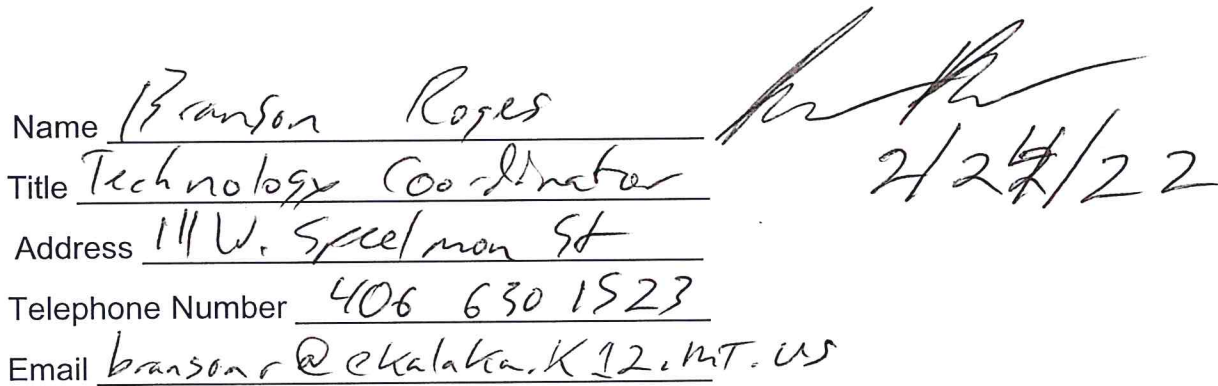 Name Branson Roges
Title Technology Coordinator
Address 111 W. Speelmon St
Telephone Number 406 630 1523
Email bransonr@ekalaka.K12.MT.US
2/24/22